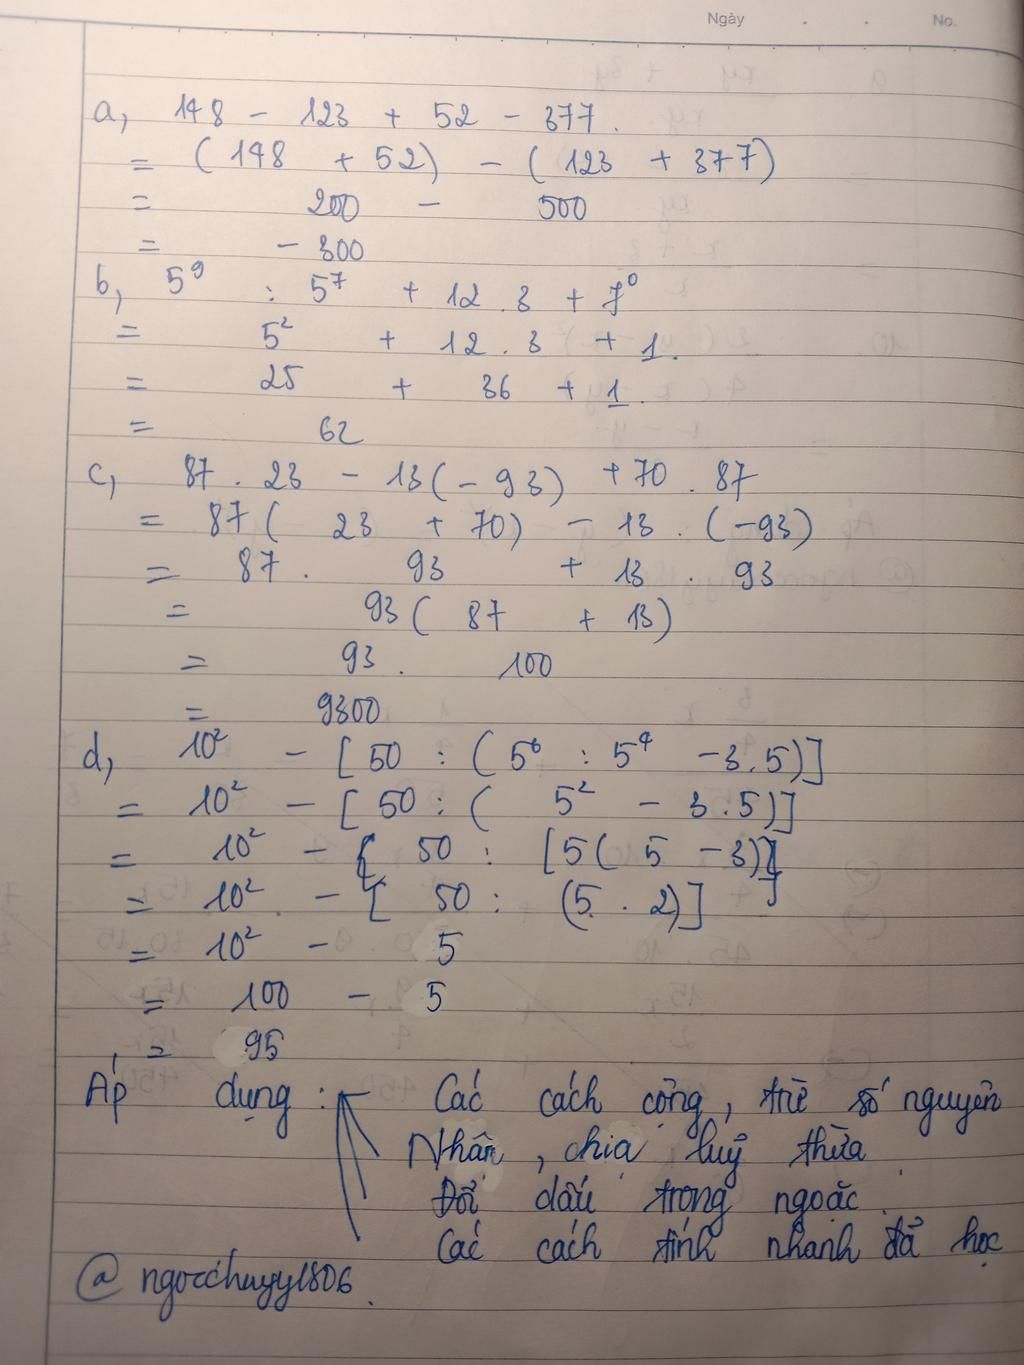 Ngày . . No.
a, 148 - 123 + 52 - 377.
= (148 + 52) - (123 + 377)
= 200 - 500
= - 300
b, 5⁹ : 5⁷ + 12 . 3 + 7⁰
= 5² + 12 . 3 + 1.
= 25 + 36 + 1.
= 62
c, 87 . 23 - 13(-93) + 70 . 87
= 87( 23 + 70) - 13 . (-93)
= 87 . 93 + 13 . 93
= 93( 87 + 13)
= 93 . 100
= 9300
d, 10² - [50 : (5⁶ : 5⁴ - 3.5)]
= 10² - [50 : ( 5² - 3.5)]
= 10² - { 50 : [5( 5 - 3)]}
= 10² - [ 50 : (5 . 2)]
= 10² - 5
= 100 - 5
= 95
Áp dụng : Các cách cộng, trừ số nguyên
Nhân, chia luỹ thừa
Đổi dấu trong ngoặc.
Các cách tính nhanh đã học
@ngocchuyy1806.